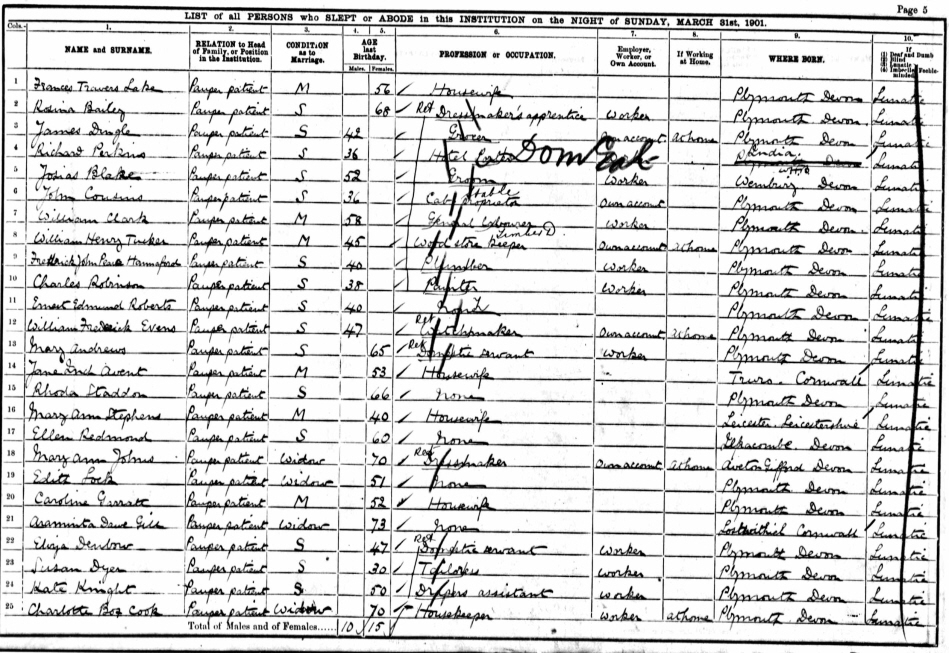 Page 5
LIST of all PERSONS who SLEPT or ABODE in this INSTITUTION on the NIGHT of SUNDAY, MARCH 31st, 1901.
Cols.— 1. 2. 3. 4. 5. 6. 7. 8. 9. 10.
NAME and SURNAME. RELATION to Head of Family, or Position in the Institution. CONDITION as to Marriage. AGE last Birthday. Males. Females. PROFESSION or OCCUPATION. Employer, Worker, or Own Account. If Working at Home. WHERE BORN. If (1) Deaf and Dumb (2) Blind (3) Lunatic (4) Imbecile, Feeble-minded
1 Frances Travers Lake Pauper patient M 56 Housewife Plymouth Devon Lunatic
2 Rosina Bailey Pauper patient S 68 Ret Dressmaker's apprentice Worker Plymouth Devon Lunatic
3 James Dingle Pauper patient S 42 Grocer Own account At home Plymouth Devon Lunatic
4 Richard Perkins Pauper patient S 36 Hotel Porter Dom India Lunatic
5 Josias Blake Pauper patient S 52 Groom Worker Wembury Devon Lunatic
6 John Cousins Pauper patient S 36 Cab proprietor Stable Own account Plymouth Devon Lunatic
7 William Clark Pauper patient M 58 General Labourer Worker Plymouth Devon Lunatic
8 William Henry Tucker Pauper patient M 45 Wood store keeper Own account at home Plymouth Devon Lunatic
9 Fredrick John Pearce Hannaford Pauper patient S 40 Plumber Worker Plymouth Devon Lunatic
10 Charles Robinson Pauper patient S 38 Painter Worker Plymouth Devon Lunatic
11 Ernest Edmund Roberts Pauper patient S 40 None Plymouth Devon Lunatic
12 William Frederick Evens Pauper patient S 47 Ret Watchmaker Own account At home Plymouth Devon Lunatic
13 Mary Andrews Pauper patient S 65 Ret Domestic servant Worker Plymouth Devon Lunatic
14 Jane Avent Pauper patient M 53 Housewife Truro Cornwall Lunatic
15 Rhoda Staddon Pauper patient S 66 None Plymouth Devon Lunatic
16 Mary Ann Stephens Pauper patient M 40 Housewife Leicester Leicestershire Lunatic
17 Ellen Redmond Pauper patient S 60 None Devon Lunatic
18 Mary Ann Johns Pauper patient Widow 70 Ret Dressmaker Own account At home Aveton Gifford Devon Lunatic
19 Edith Lock Pauper patient Widow 51 None Plymouth Devon Lunatic
20 Caroline Pauper patient M 52 Housewife Plymouth Devon Lunatic
21 Araminta Dawe Gill Pauper patient Widow 73 None Lostwithiel Cornwall Lunatic
22 Eliza Denbow Pauper patient S 47 Ret Domestic servant Worker Plymouth Devon Lunatic
23 Susan Dyer Pauper patient S 30 Tailoress Worker Plymouth Devon Lunatic
24 Kate Knight Pauper patient S 50 Drapers assistant Worker Plymouth Devon Lunatic
25 Charlotte Cook Pauper patient Widow 70 Housekeeper Worker at home Plymouth Devon Lunatic
Total of Males and of Females...... 10 15